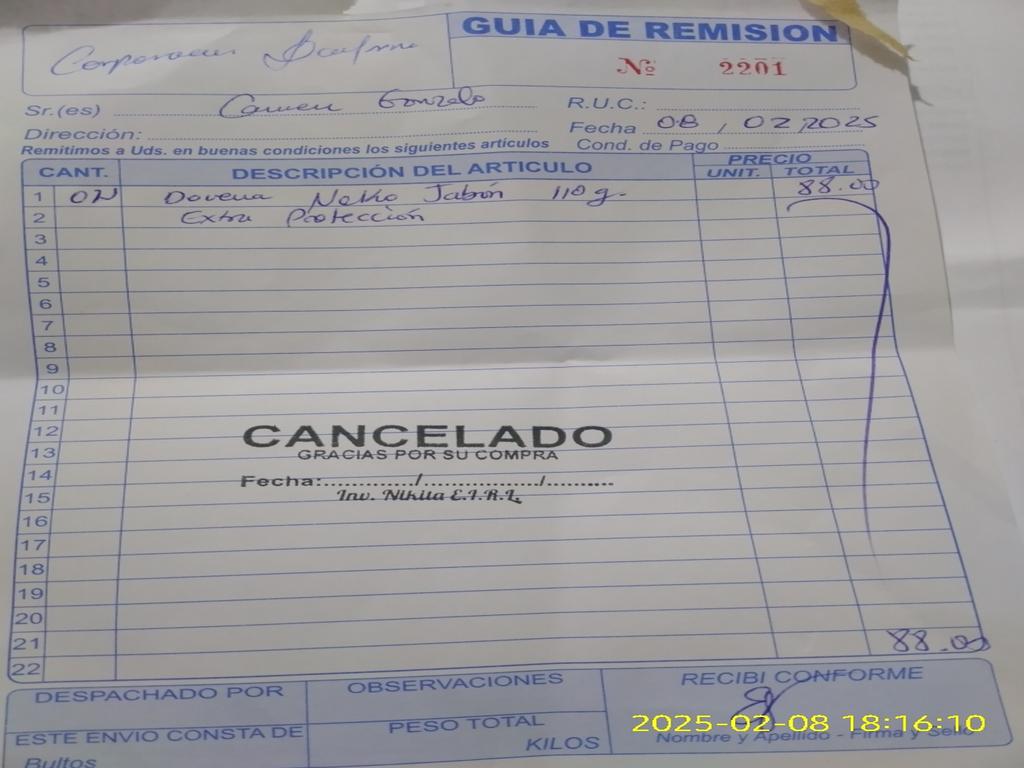 GUIA DE REMISION
Nº 2201
Sr.(es) Carmen Gonzalo
R.U.C.:
Dirección:
Fecha 08 / 02/2025
Remitimos a Uds. en buenas condiciones los siguientes articulos
Cond. de Pago
CANT. DESCRIPCIÓN DEL ARTICULO PRECIO
UNIT. TOTAL
1 02 Docena Neko Jabón 110g. 88.00
2 Extra Protección
3
4
5
6
7
8
9
10
11
12
13
14
15
16
17
18
19
20
21 88.00
22
CANCELADO
GRACIAS POR SU COMPRA
Fecha:............/................/..........
Inv. Nikita E.I.R.L.
DESPACHADO POR
OBSERVACIONES
RECIBI CONFORME
ESTE ENVIO CONSTA DE
Bultos
PESO TOTAL
KILOS
Nombre y Apellido - Firma y Sello
2025-02-08 18:16:10